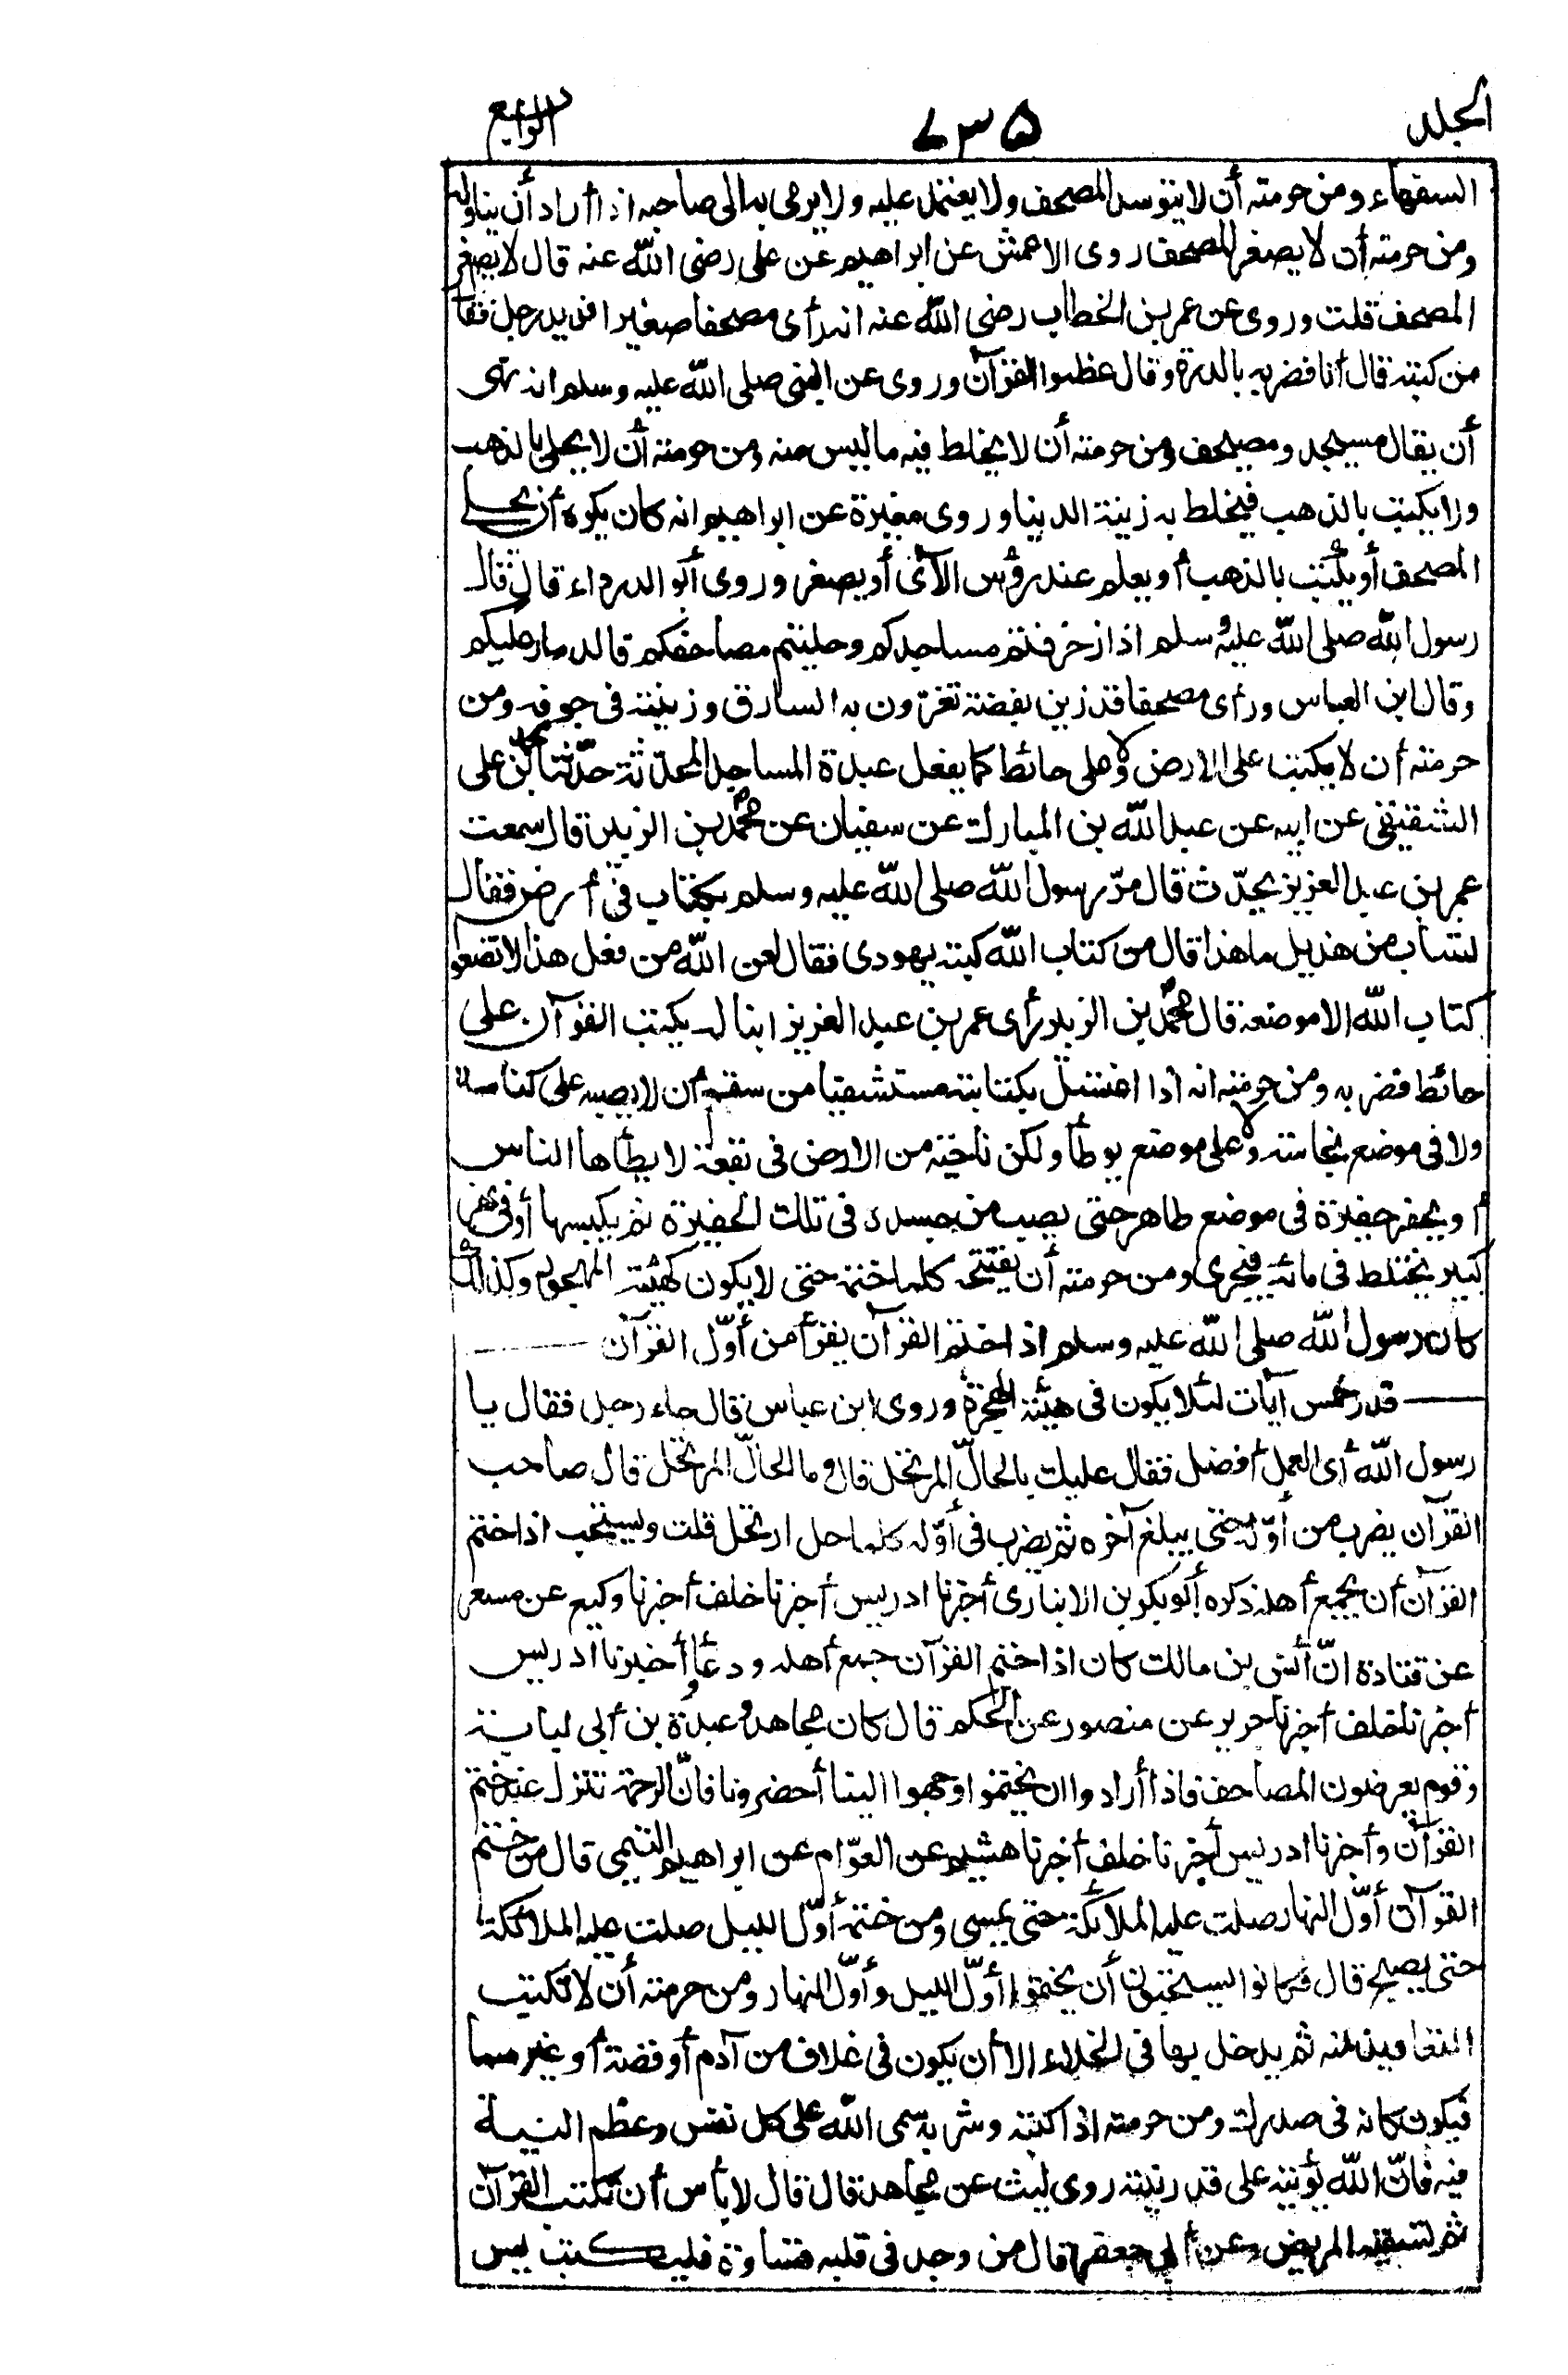 الجلد ٧٣٥ الرابع
السفهاء ومن حرمته أن لا يتوسد المصحف ولا يعتمل عليه ولا يرمى به الى صاحبه اذا أراد أن يناوله
ومن حرمته أن لا يصغر المصحف روى الاعمش عن ابراهيم عن على رضى الله عنه قال لا يصغر
المصحف قلت وروى عن عمر بن الخطاب رضى الله عنه انه رأى مصحفا صغيرا فى يد رجل فقا
من كتبه قال أنا فضربه بالدرة وقال عظموا القرآن وروى عن النبى صلى الله عليه وسلم انه نهى
أن يقال مسيجد ومصيحف ومن حرمته أن لا يخلط فيه ما ليس منه ومن حرمته أن لا يحلى بالذهب
ولا يكتب بالذهب فيخلط به زينة الدنيا وروى مغيرة عن ابراهيم انه كان يكره أن يحلى
المصحف أو يكتب بالذهب أو يعلم عند رؤس الآى أو يصغر وروى أبو الدرداء قال قال
رسول الله صلى الله عليه وسلم اذا زخرفتم مساجدكم وحليتم مصاحفكم فالدمار عليكم
وقال ابن العباس ورأى مصحفا قد زين بفضة تغرون به السارق وزينته فى جوفه ومن
حرمته أن لا يكتب على الارض ولا على حائط كما يفعل عبدة المساجد المحدثة حدثنا محمد بن على
الشقيقى عن ابيه عن عبد الله بن المبارك عن سفيان عن محمد بن الزبير قال سمعت
عمر بن عبد العزيز يحدّث قال مرّ رسول الله صلى الله عليه وسلم بكتاب فى أرض فقال
لشاب من هذيل ما هذا قال من كتاب الله كتبه يهودى فقال لعن الله من فعل هذا لا تضعوا
كتاب الله الا موضعه قال محمد بن الزبير رأى عمر بن عبد العزيز ابنا له يكتب القرآن على
حائط فضربه ومن حرمته انه اذا اغتسل بكتابته مستشفيا من سقم أن لا يصبه على كناسة
ولا فى موضع نجاسة ولا على موضع يوطأ ولكن ناحية من الارض فى بقعة لا يطأها الناس
أو يحفر حفيرة فى موضع طاهر حتى يصب من جسده فى تلك الحفيرة ثم يكبسها أو فى نهر
كبير يختلط فى مائه فيجرى ومن حرمته أن يفتتحه كلما ختمه حتى لا يكون كهيئة المهجور وكذلك
كان رسول الله صلى الله عليه وسلم اذا ختم القرآن يقرأ من أوّل القرآن
قدر خمس آيات لئلا يكون فى هيئة الهجرة وروى ابن عباس قال جاء رجل فقال يا
رسول الله أى العمل أفضل فقال عليك بالحالّ المرتحل قال وما الحالّ المرتحل قال صاحب
القرآن يضرب من أوّله حتى يبلغ آخره ثم يضرب فى أوّله كلما حل ارتحل قلت ويستحب اذا ختم
القرآن أن يجمع أهله ذكره أبو بكر بن الانبارى أخبرنا ادريس أخبرنا خلف أخبرنا وكيع عن مسعر
عن قتادة انّ أنس بن مالك كان اذا ختم القرآن جمع أهله ودعا وأخبرنا ادريس
أخبرنا خلف أخبرنا جرير عن منصور عن الحكم قال كان مجاهد وعبدة بن أبى لبابة
وقوم يعرضون المصاحف فاذا أرادوا ان يختموا وجهوا الينا أحضرونا فانّ الرحمة تنزل عند ختم
القرآن وأخبرنا ادريس أخبرنا خلف أخبرنا هشيم عن العوّام عن ابراهيم التيمى قال من ختم
القرآن أوّل النهار صلت عليه الملائكة حتى يمسى ومن ختمه أوّل الليل صلت عليه الملائكة
حتى يصبح قال فكانوا يستحبون أن يختموا أوّل الليل وأوّل النهار ومن حرمته أن لا تكتب
التعاويذ منه ثم يدخل بها فى الخلاء الا أن يكون فى غلاف من آدم أو فضة أو غيرهما
فيكون كانه فى صدرك ومن حرمته اذا كتبه وشربه سمى الله على كل نفس وعظم النية
فيه فانّ الله يؤتيه على قدر نيته روى ليث عن مجاهد قال قال لا بأس أن تكتب القرآن
ثم تسقيه المريض وعن أبى جعفر قال من وجد فى قلبه قساوة فليكتب يس